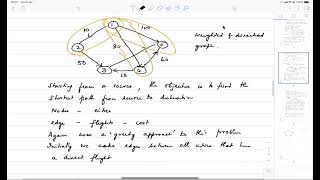 10
100
weighted & directed
graph.
30
50
60
10
Starting from a source, the objective is to find the
shortest path from source to destination
Node - cities
edge - flights - cost
Again uses a "greedy approach" to this problem
Initially we make edges between all cities that h
a direct flight